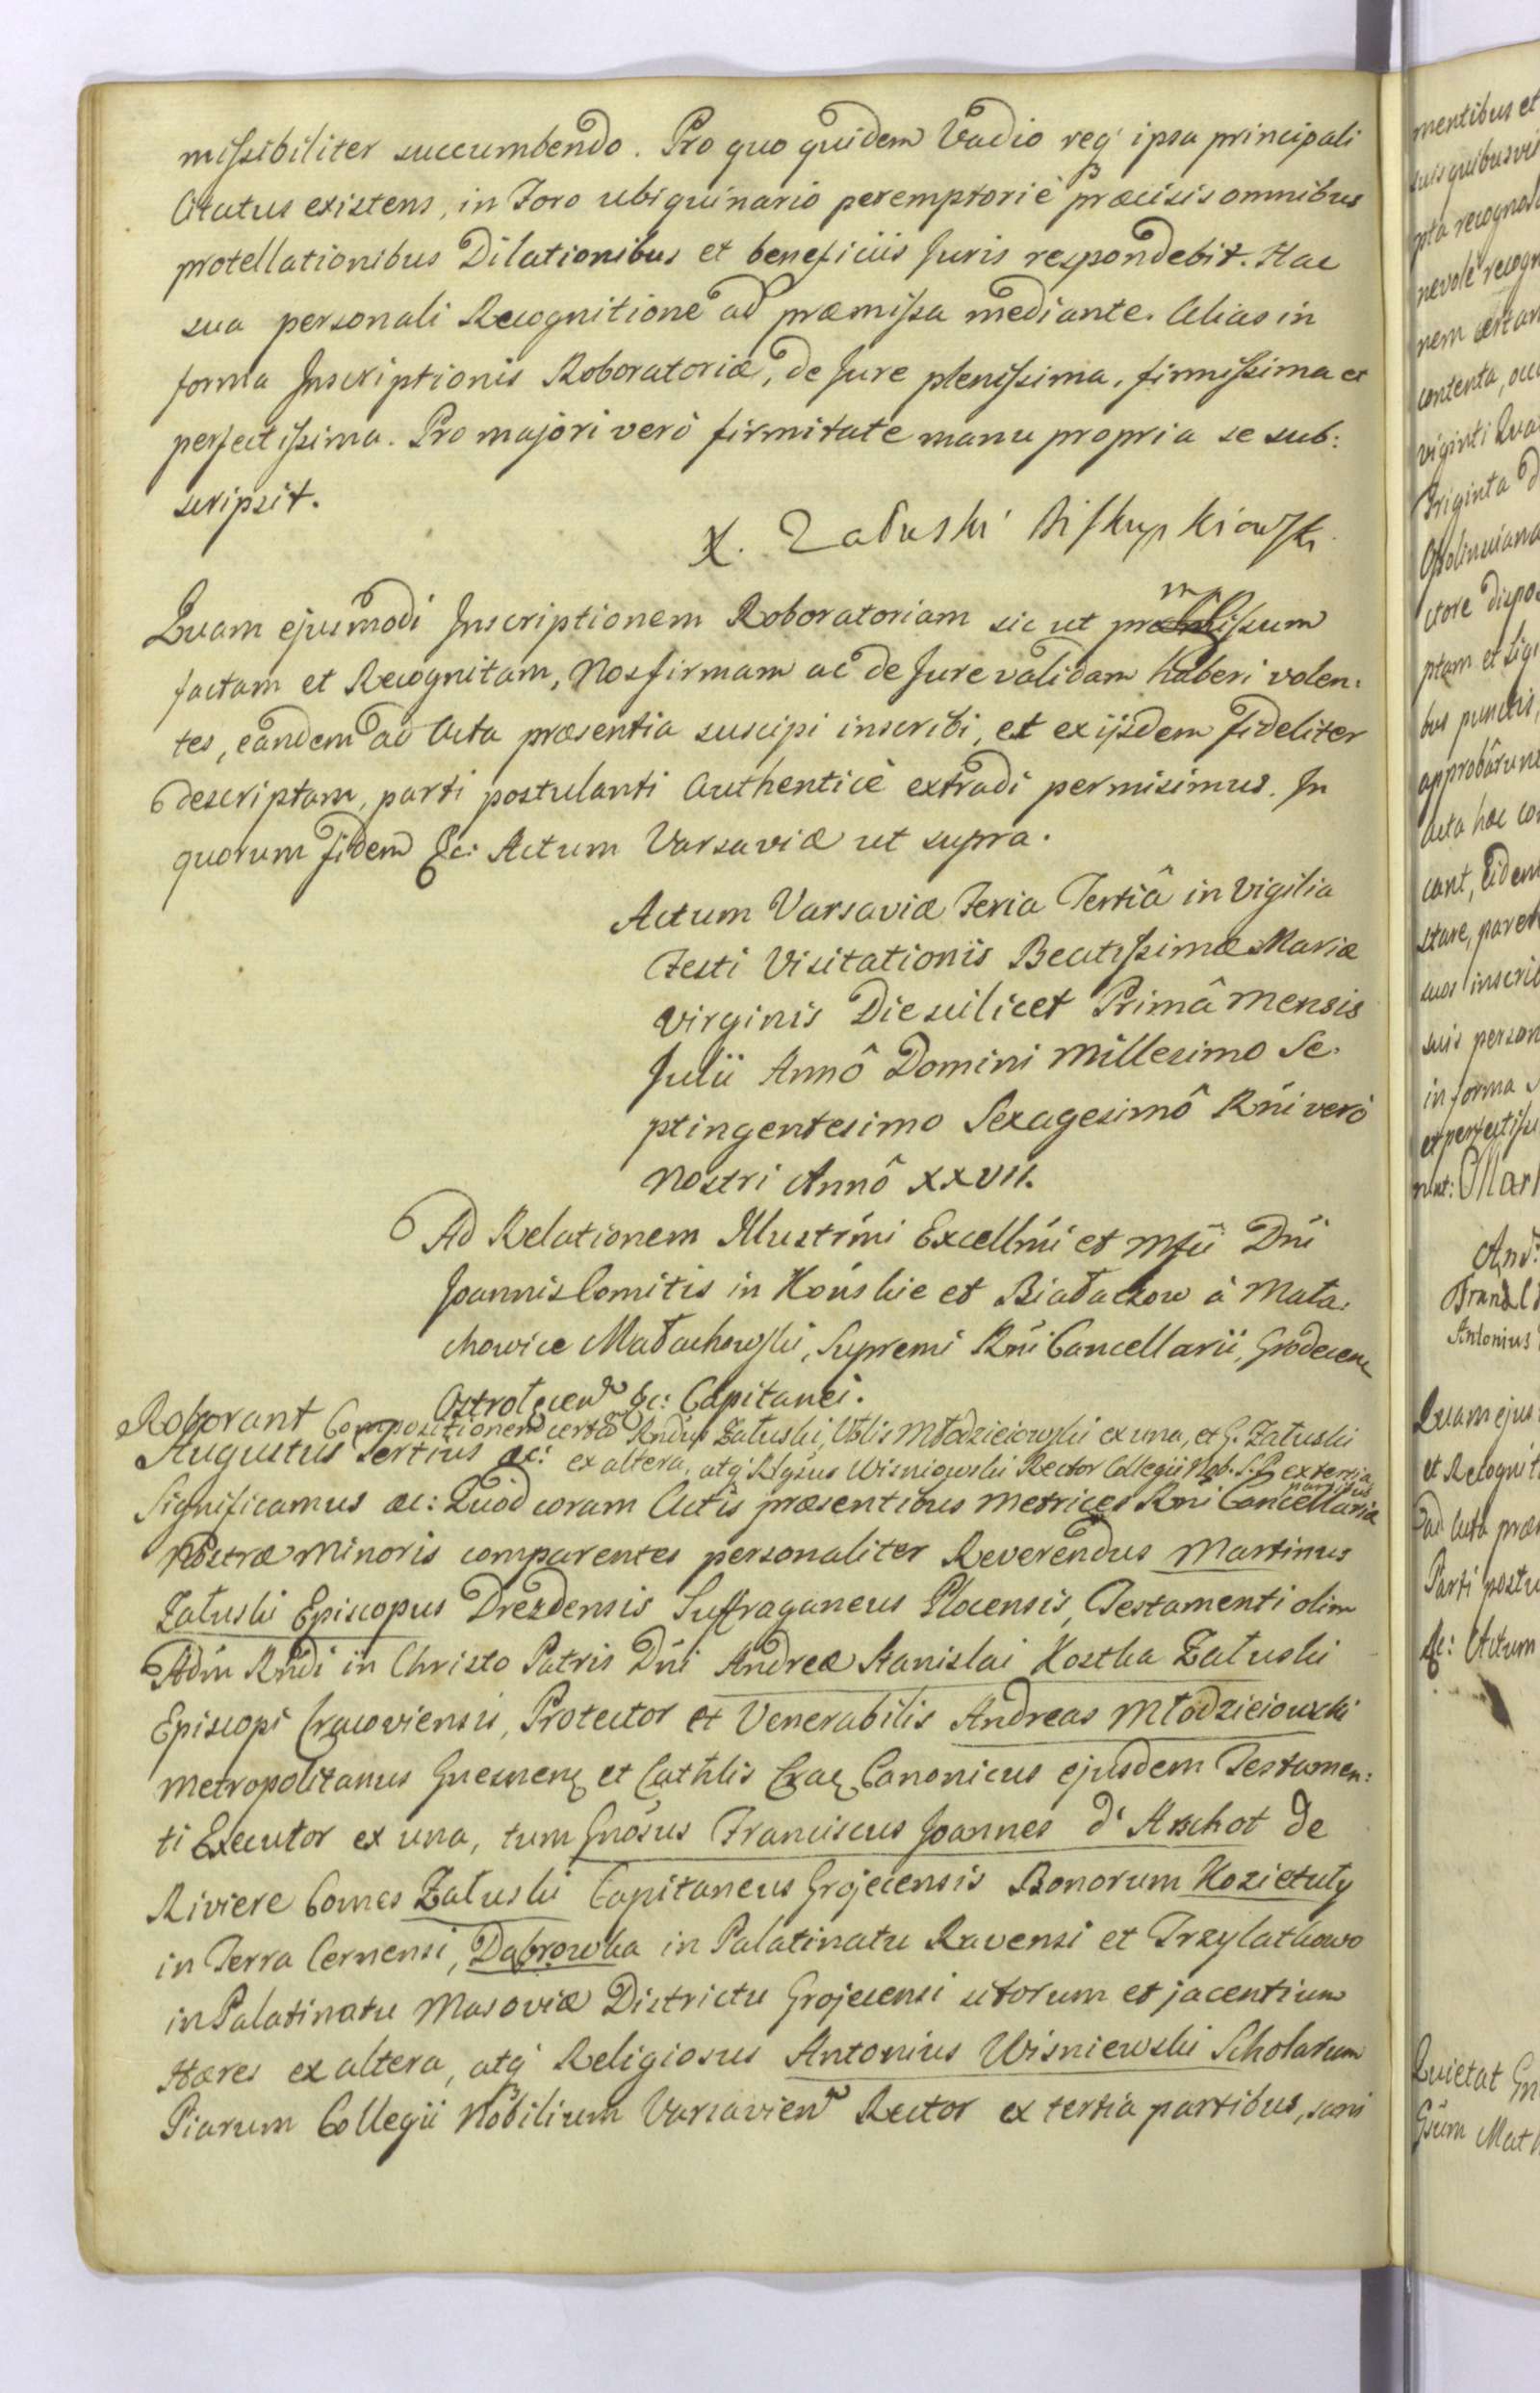 missibiliter succumbendo. Pro quo quidem Vadio reqꝫ ipsa principali
Citatus existens, in Foro ubiquinario peremptoriè præcisis omnibus
protellationibus Dilationibus et beneficiis Juris respondebit. Hac
sua personali Recognitione ad præmissa mediante. Alias in
forma Inscriptionis Roboratoriæ, de Jure plenissima, firmissima et
perfectissima. Pro majori verò firmitate manu propria se sub:
scripsit.
X. Załuski Biskup Kiowski
Quam ejusmodi Inscriptionem Roboratoriam sic ut præmissum
factam et Recognitam, Nos firmam ac de Jure validam haberi volen:
tes, eandem ad Acta præsentia suscipi inscribi, et ex iisdem fideliter
descriptam, parti postulanti Authenticè extradi permisimus. In
quorum fidem &c: Actum Varsaviæ ut supra.
Actum Varsaviæ Feria Tertiâ in Vigilia
Festi Visitationis Beatissimæ Mariæ
Virginis Die scilicet Primâ Mensis
Julii Annô Domini Millesimo Se.
ptingentesimo Sexagesimô Rñi verò
Nostri Annô XXVII.
Ad Relationem Illustrmi Excellmi et Mfci Dñi
Joannis Comitis in Końskie et Białaczow à Mała:
chowice Małachowski, Supremi Rñi Cancellarii, Grodecen
Ostrołęcen &c: Capitanei.
Roborant Compositionem certam Rndus Załuski, Vblis Młodzieiowski ex una, et G. Załuski
Augustus Tertius &c: ex altera, atqꝫ Rlgsus Wisniowski Rector Collegii Nob. S. P. ex tertia
partibus
Significamus &c: Quod coram Actis præsentibus Metrices Rñi Cancellariæ
Nostræ Minoris comparentes personaliter Reverendus Martinus
Załuski Episcopus Drezdensis Suffraganeus Plocensis, Testamenti olim
Adm Rndi in Christo Patris Dñi Andreæ Stanislai Kostka Załuski
Episcopi Cracoviensis, Protector et Venerabilis Andreas Młodzieiowski
Metropolitanus Gnesnens et Cathlis Crac Canonicus ejusdem Testamen:
ti Executor ex una, tum Gnosus Franciscus Joannes d'Arschot de
Riviere Comes Załuski Capitaneus Grojecensis Bonorum Kozietuły
in Terra Cernensi, Dąbrowka in Palatinatu Ravensi et Trzylatkowo
in Palatinatu Masoviæ Districtu Grojecensi sitorum et jacentium
Hæres ex altera, atqꝫ Religiosus Antonius Wisniewski Scholarum
Piarum Collegii Nobilium Varsavien Rector ex tertia partibus, sani